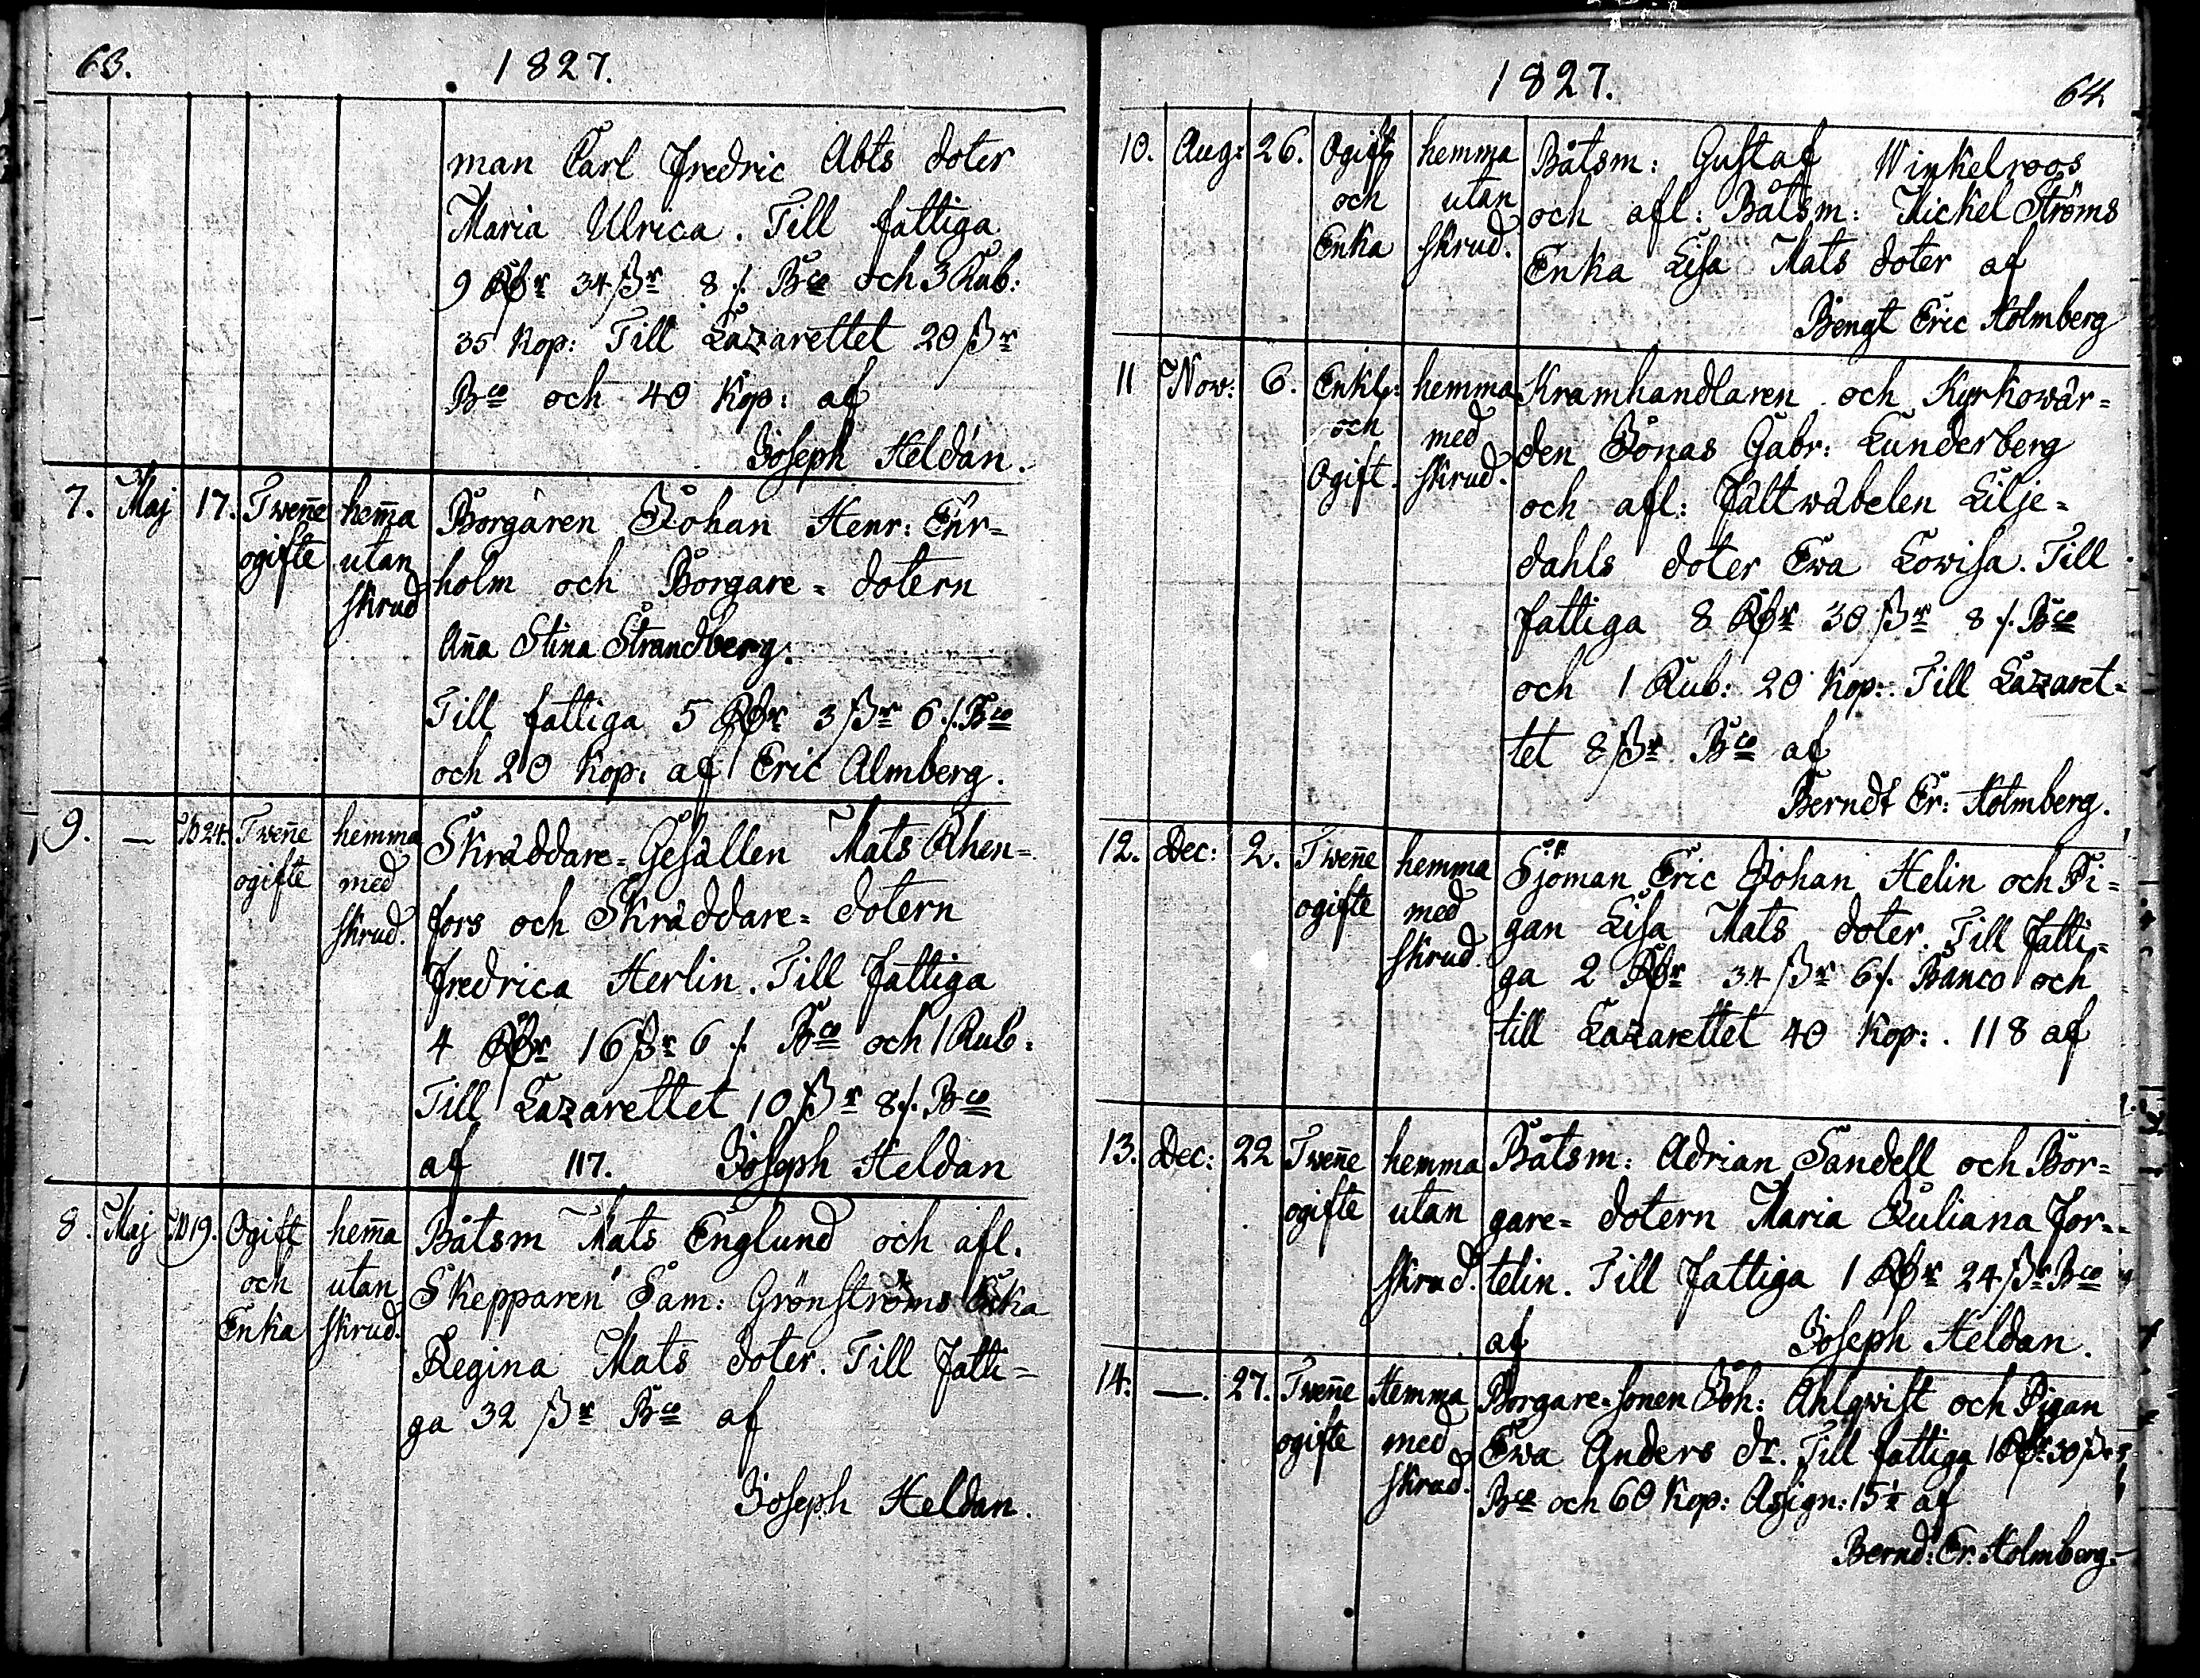 63.
1827.
man Carl Fredric Abts doter
Maria Ulrica. Till fattiga
9 Rdr 34 ßr 8 /. Bco och 3 Rub:
35 Kop: Till Lazarettet 20 ßr
Bco och 40 Kop: af
Joseph Heldán.
7. Maj 17. Twen̄e hem̄a Borgaren Johan Henr: Ehr=
ogifte utan holm och Borgare= dotern
skrud An̄a Stina Strandberg.
Till fattiga 5 Rdr 3 ßr 6 /. Bco
och 20 Kop: af Eric Almberg.
9. — 24. Twen̄e hemma Skräddare=Gesällen Mats Rhen=
ogifte med fors och Skräddare= dotern
skrud. Fredrica Herlin. Till Fattiga
4 Rdr 16 ßr 6 /. Bco och 1 Rub:
Till Lazarettet 10 ßr 8 /. Bco
af 117. Joseph Heldan
8. Maj 19. Ogift hem̄a Båtsm Mats Englund och afl.
och utan Skepparen Sam: Grönströms Enka
Enka skrud. Regina Mats doter. Till Fatti=
ga 32 ßr Bco af
Joseph Heldan.
1827.
64
10. Aug: 26. Ogift hemma Båtsm: Gustaf Winkelroos
och utan och afl: Båtsm: Mickel Ströms
Enka skrud. Enka Lisa Mats doter af
Bengt Eric Holmberg
11 Now: 6. Enkl: hemma Kramhandlaren och Kyrkowär=
och med den Jonas Gabr: Lunderberg
Ogift. skrud. och afl: Fältwäbelen Lilje=
dahls doter Ewa Lowisa. Till
fattiga 8 Rdr 30 ßr 8 /. Bco
och 1 Rub: 20 Kop: Till Lazaret=
tet 8 ßr Bco af
Berndt Er: Holmberg.
12. Dec: 2. Twen̄e hemma Sjöman Eric Johan Helin och Pi=
ogifte med gan Lisa Mats doter. Till Fatti=
skrud. ga 2 Rdr 34 ßr 6 /. Banco och
till Lazarettet 40 Kop: . 118 af
13. Dec: 22 Twen̄e hemma Båtsm: Adrian Sandell och Bor=
ogifte utan gare= dotern Maria Juliana For=
skrud. telin. Till Fattiga 1 Rdr 24 ßr Bco
af Joseph Heldan.
14. —. 27. Twen̄e Hemma Borgare=sonen Joh: Ahlqwist och Pigan
ogifte med Ewa Anders dr. Till fattiga 1 Rdr 30 ßr
skrud. Bco och 60 Kop: Asign: af
Bernd: Er: Holmberg.